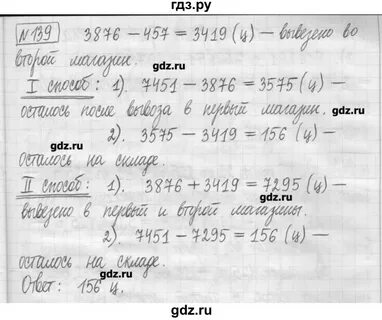 гдз.ру
№139 3876 - 457 = 3419 (ц) - вывезено во
второй магазин.
I способ: 1). 7451 - 3876 = 3575 (ц) -
осталось после вывоза в первый магазин.
gdz.ru gdz.ru
2). 3575 - 3419 = 156 (ц) -
осталось на складе.
gdz.ru gdz.ru
II способ: 1). 3876 + 3419 = 7295 (ц) -
вывезено в первый и второй магазины.
gdz.ru gdz.ru
2). 7451 - 7295 = 156 (ц) -
осталось на складе.
gdz.ru gdz.ru
Ответ: 156 ц.
gdz.ru